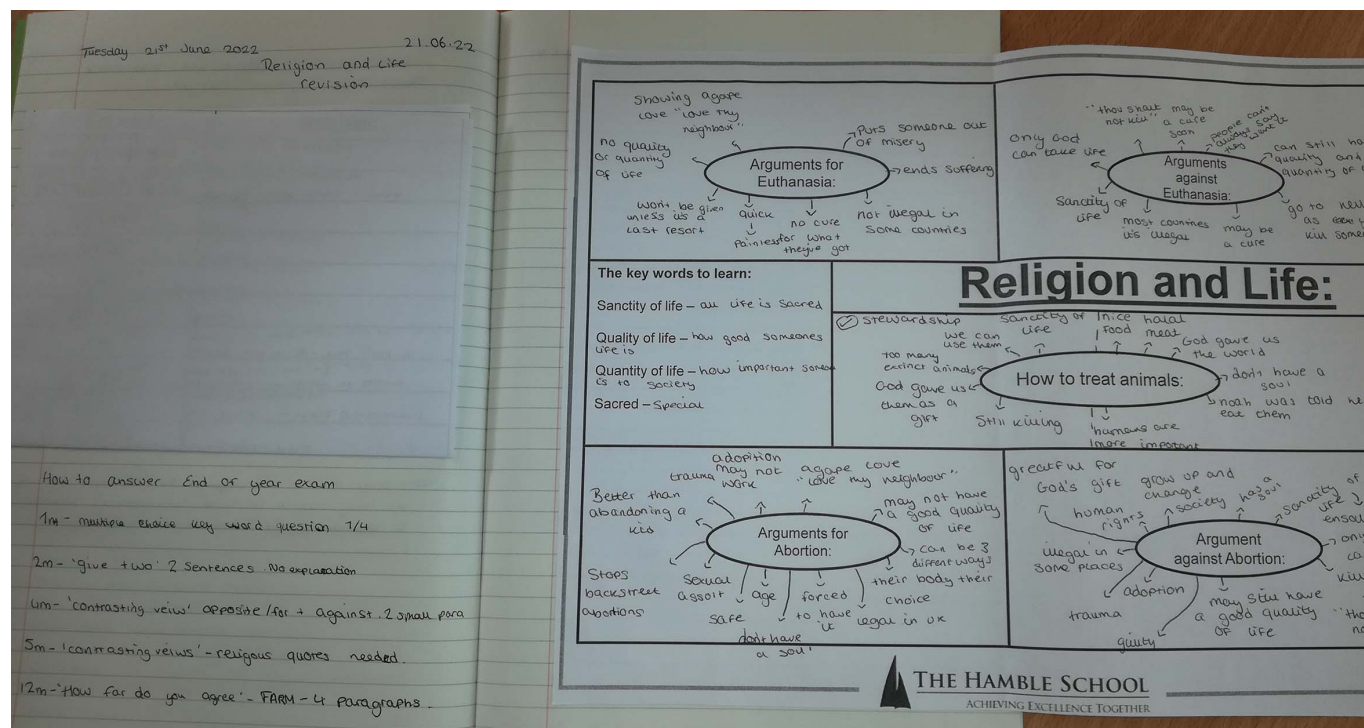 Tuesday 21st June 2022
21.06.22
Religion and Life
revision
How to answer End of year exam
1m - multiple choice key word question 1/4
2m - 'give two' 2 sentences. No explanation
4m - 'contrasting veiw' opposite/for + against. 2 small para
5m - 'contrasting veiws' - religous quotes needed.
12m - 'How far do you agree' - FARM - 4 paragraphs.
Arguments for
Euthanasia:
Showing agape
love "love thy
neighbour"
Puts someone out
of misery
ends suffering
not illegal in
some countries
no cure
for what
they've got
quick
Painless
won't be given
unless it's a
last resort
no quality
or quantity
of life
Arguments
against
Euthanasia:
"thou shalt
not kill"
may be
a cure
soon
people can't
always say
they want it
can still
quality and
quantity of
go to
as
kill
may be
a cure
most countries
it's illegal
Sanctity of
life
only God
can take life
The key words to learn:
Sanctity of life – all life is sacred
Quality of life – how good someones
life is
Quantity of life – how important
is to society
Sacred – special
Religion and Life:
How to treat animals:
stewardship
we can
use them
Sanctity of
life
nice
food
halal
meat
God gave us
the world
don't have a
soul
noah was told
eat them
humans are
more important
Still killing
God gave us
them as a
gift
too many
extinct animals
Arguments for
Abortion:
Better than
abandoning a
kid
trauma
adopition
may not
work
agape love
"love my neighbour"
may not have
a good quality
of life
can be 3
diffent ways
their body their
choice
legal in uk
forced
to have
it
don't have
a soul
age
safe
sexual
assolt
Stops
backstreet
abortions
Argument
against Abortion:
greatful for
God's gift
human
rights
grow up and
change
society
has a
soul
sanctity of
life
may still have
a good quality
of life
guilty
adoption
trauma
illegal in
some places
THE HAMBLE SCHOOL
ACHIEVING EXCELLENCE TOGETHER